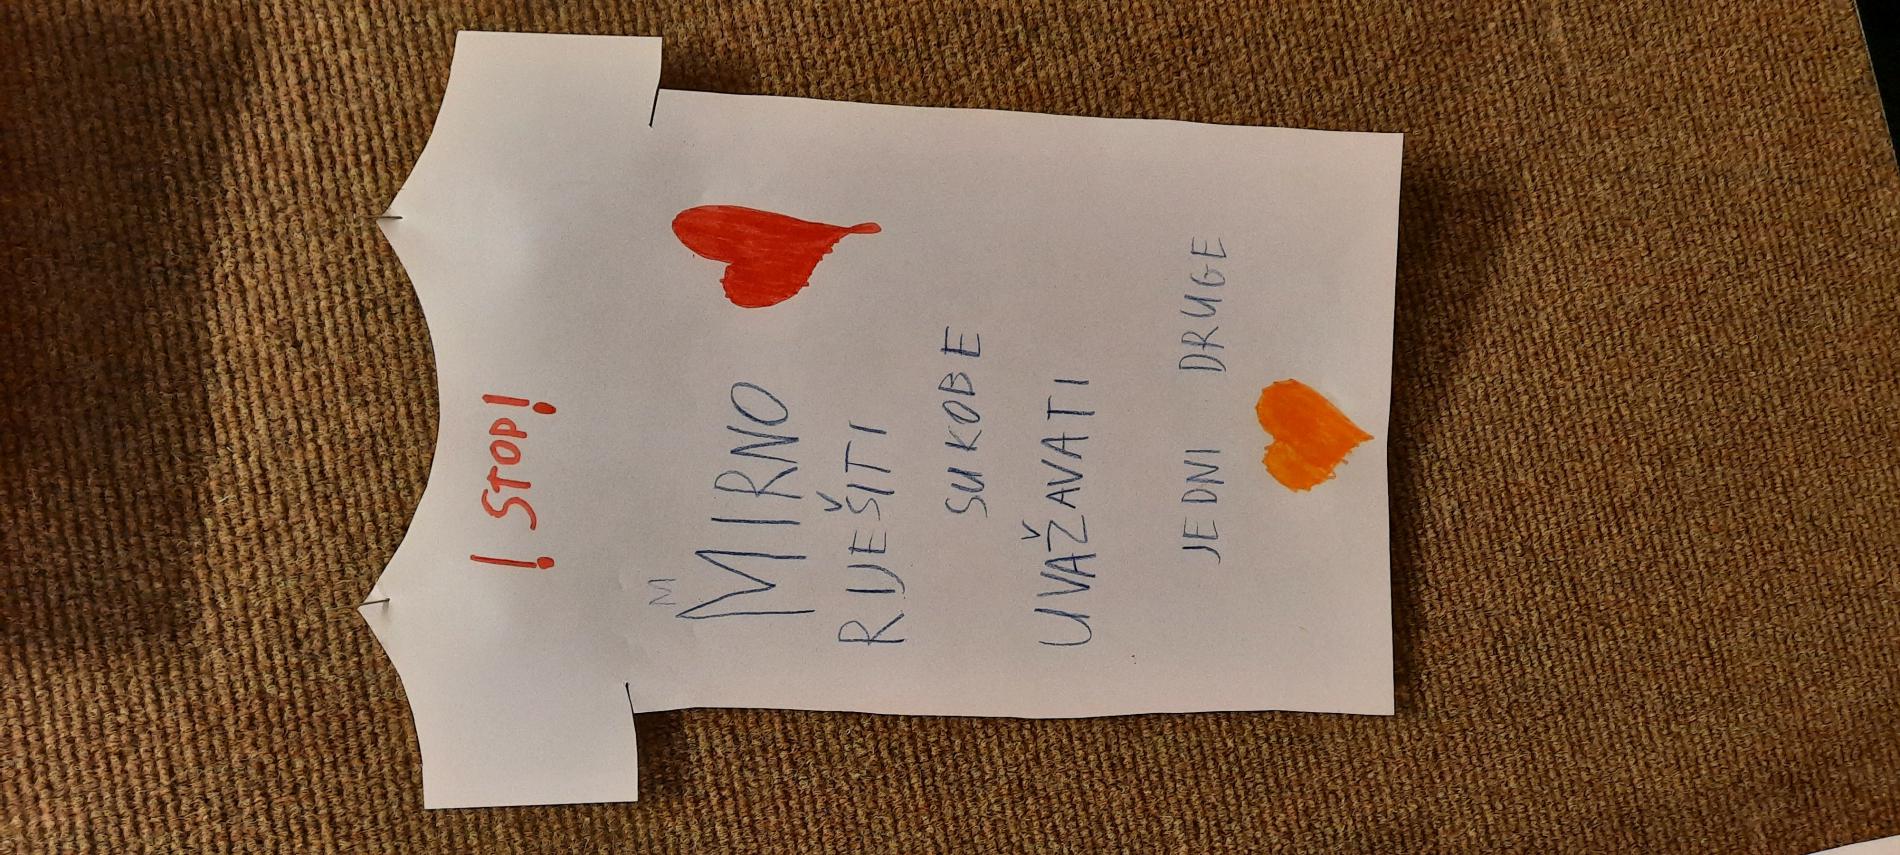 ! STOP!
M
MIRNO
RIJEŠITI
SUKOBE
UVAŽAVATI
JEDNI DRUGE